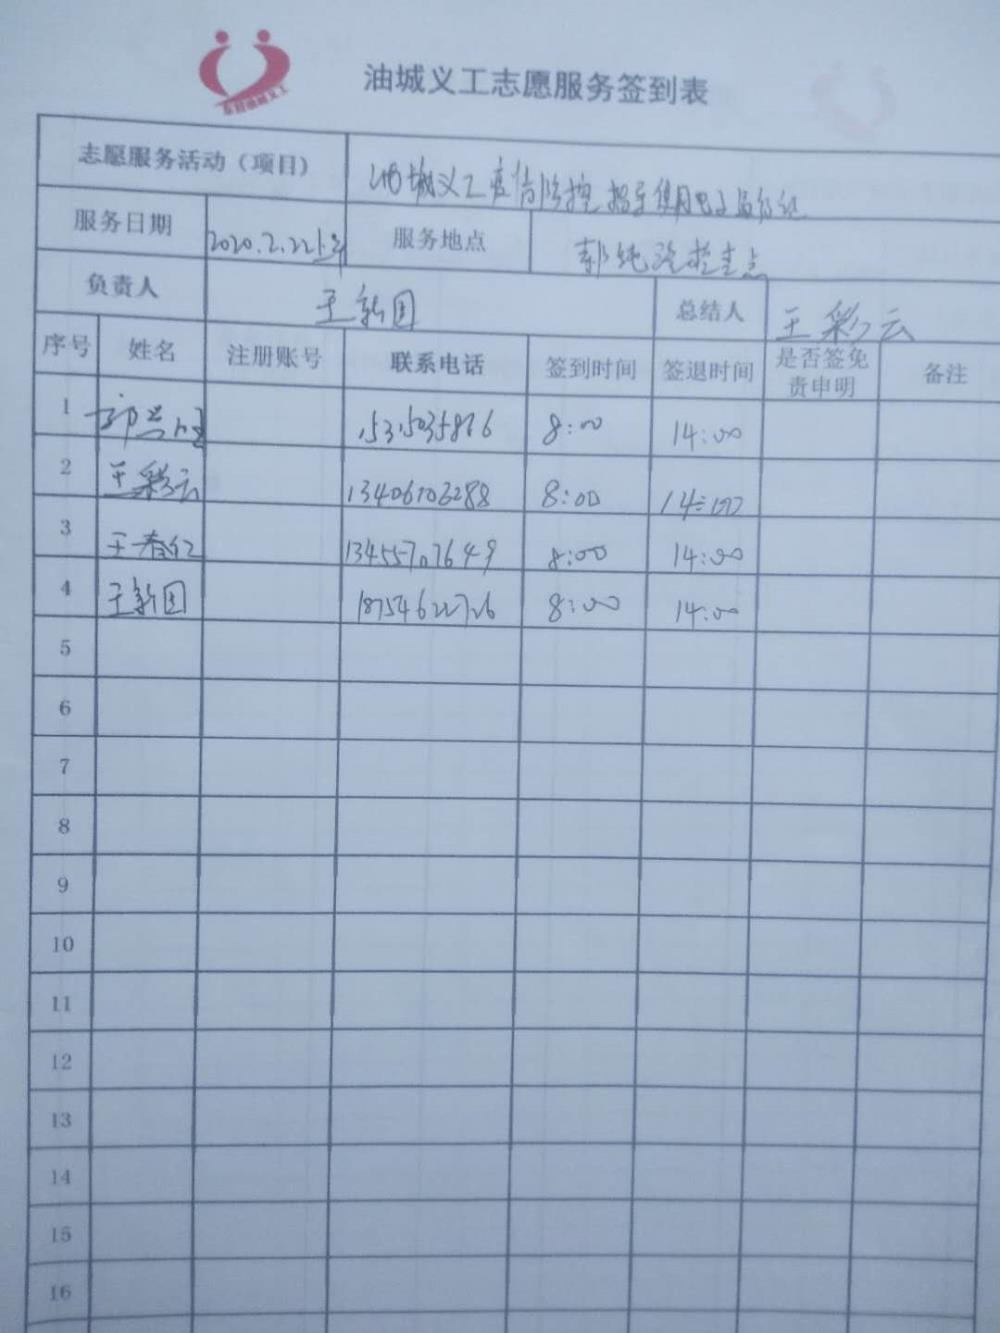 油城义工志愿服务签到表
志愿服务活动（项目） 油城义工疫情防控指导使用电子出行证
服务日期 2020.2.22上午 服务地点
负责人 王新国 总结人 王彩云
序号 姓名 注册账号 联系电话 签到时间 签退时间 是否签免责申明 备注
1 8:00 14:00
2 王彩云 13406103288 8:00 14:00
3 王春红 13455707649 8:00 14:00
4 王新国 18754622726 8:00 14:00
5
6
7
8
9
10
11
12
13
14
15
16